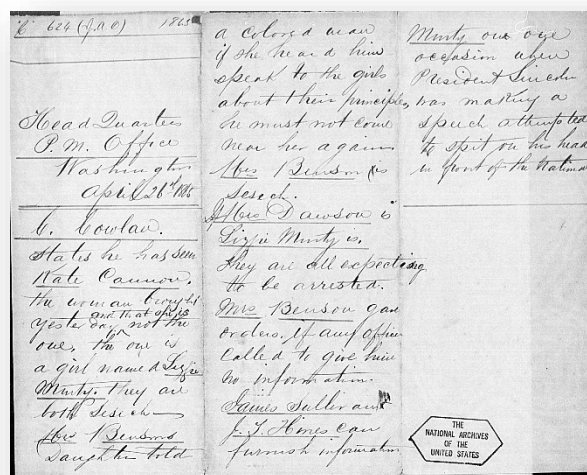 C 624 (J.A.O) 1865
Head Quarters
P. M. Office
Washington
April 26th 1865
C. Cowlam.
States he has seen
Kate Cannon,
the woman brought
yesterday and that she is not the
one, the one is
a girl named Lizzie
Murty. they are
both Sesech
Mrs Bensons
Daughter told
a colored man
if she heard him
speak to the girls
about their principles,
he must not come
near her again
Mrs Benson is
Sesech.
Mrs Dawson is
Lizzie Murty is.
they are all expecting
to be arrested.
Mrs Benson gave
orders, if any officer
called to give him
no information.
James Sullivan
J. T. Hines can
furnish information
Murty on one
occasion when
President Lincoln
was making a
speech attempted
to spit on his head
in front of the National
THE
NATIONAL ARCHIVES
OF THE
UNITED STATES